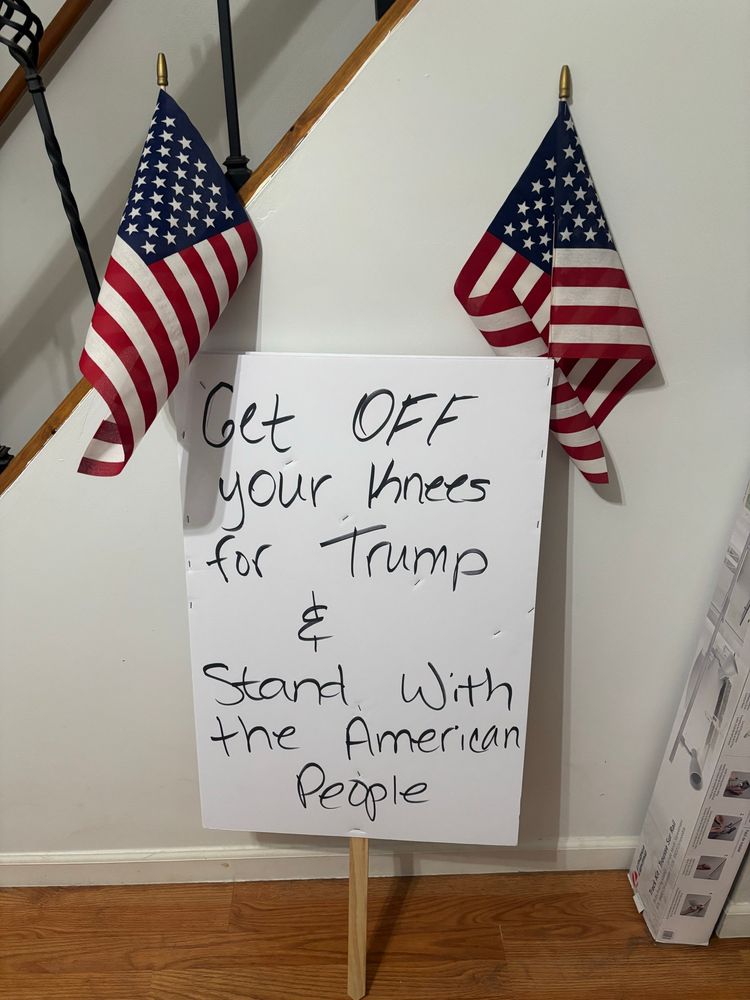 Get OFF
your Knees
for Trump
&
Stand With
the American
People